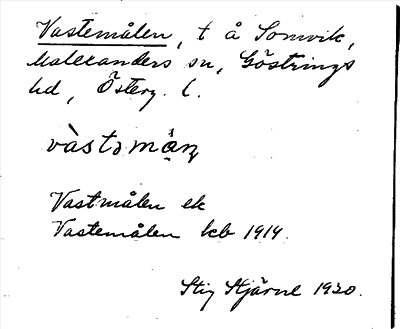 Vastemålen, t å Somvik,
Malexanders sn, Göstrings
hd, Österg. l.
vàstəmåɳ
Vastmålen ek
Vastemålen kcb 1914.
Stig Stjärne 1920.